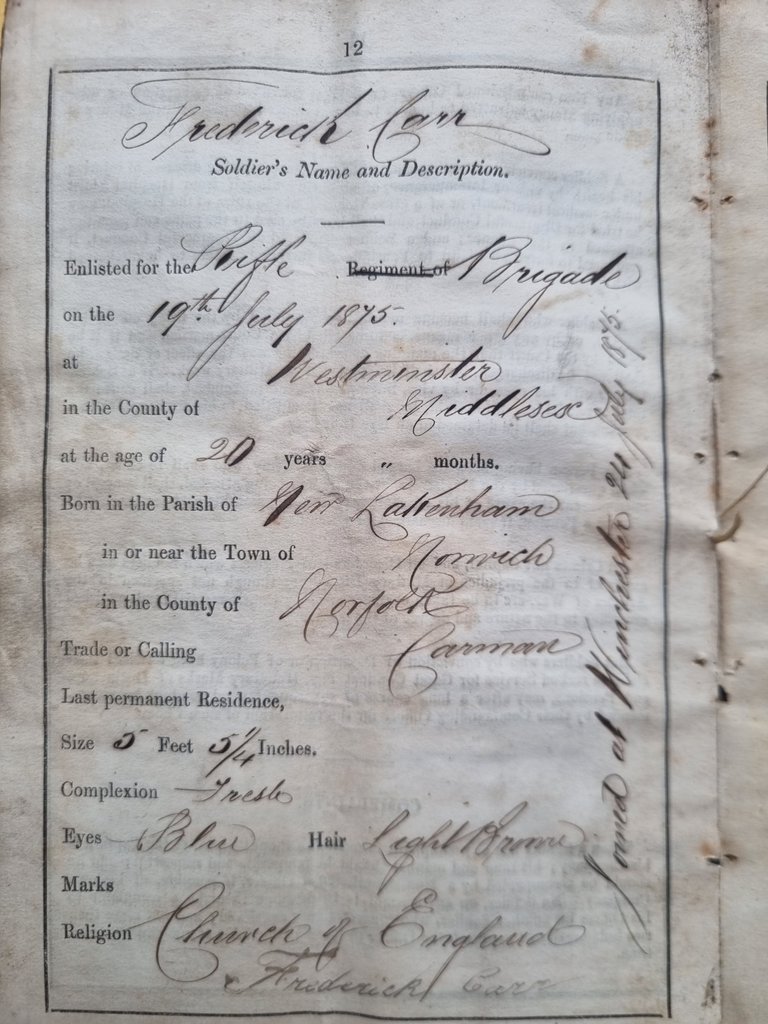 12
Frederick Carr
Soldier's Name and Description.
Enlisted for the Rifle Regiment of Brigade
on the 19th July 1875.
at Westminster
in the County of Middlesex
at the age of 20 years " months.
Born in the Parish of New Lakenham
in or near the Town of Norwich
in the County of Norfolk
Trade or Calling Carman
Last permanent Residence,
Size 5 Feet 5 1/4 Inches.
Complexion Fresh
Eyes Blue Hair Light Brown
Marks
Religion Church of England
Frederick Carr
Joined at Winchester 24 July 1875.